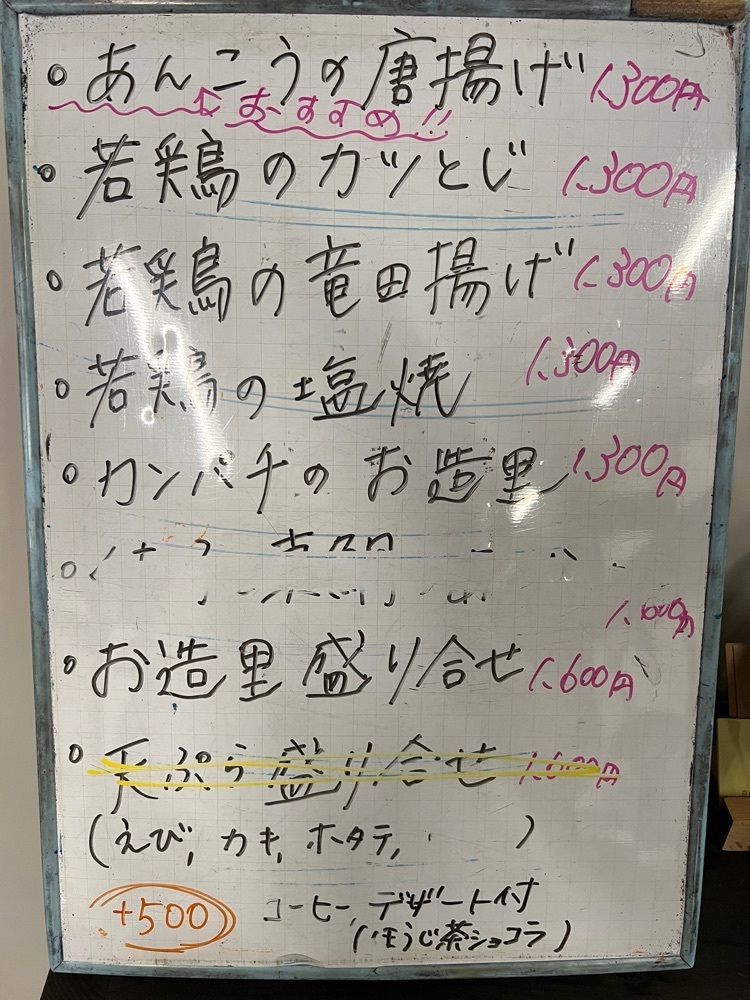 あんこうの唐揚げ 1,300円
おすすめ!!
若鶏のカツとじ 1,300円
若鶏の竜田揚げ 1,300円
若鶏の塩焼 1,300円
カンパチのお造里 1,300円
お造里盛り合せ 1,600円
天ぷら盛り合せ 1,600円
(えび,カキ,ホタテ, )
+500 コーヒー,デザート付
(ほうじ茶ショコラ)